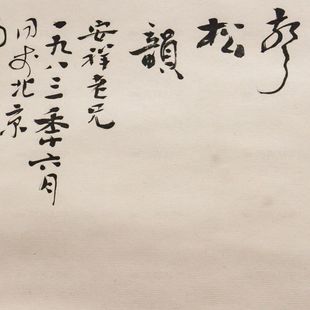 松
韻
安祥老兄
一九八三年六月
北京